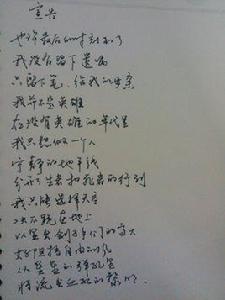 宣告
也许最后的时刻到了
我没有留下遗嘱
只留下笔,给我的母亲
我并不是英雄
在没有英雄的年代里
我只想做一个人
宁静的地平线
分开了生者和死者的行列
我只能选择天空
决不跪在地上
以显出刽子手们的高大
好阻挡自由的风
从星星的弹孔里
将流出血红的黎明